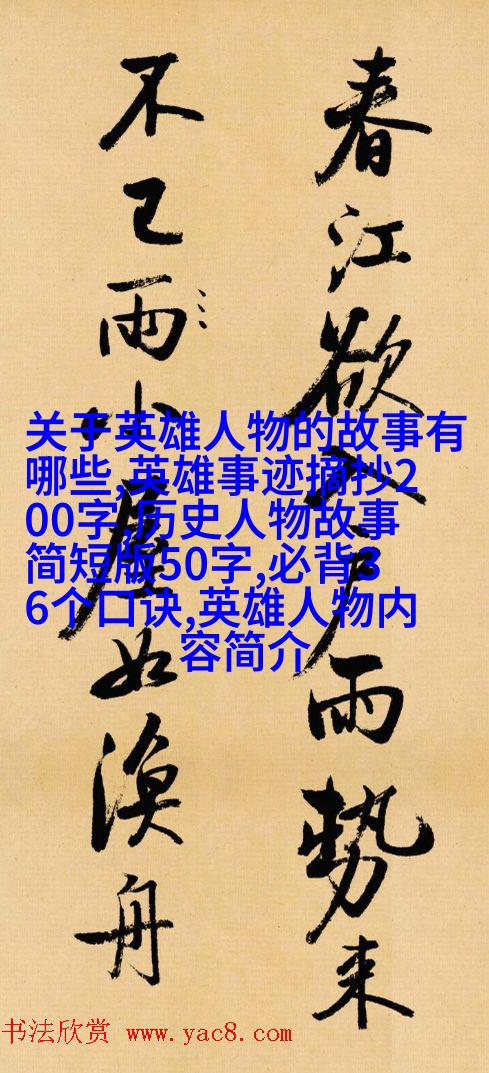 春江欲入户雨势来
不已雨小屋如渔舟
关于英雄人物的故事有
哪些,英雄事迹摘抄2
00字,历史人物故事
简短版50字,必背3
6个口诀,英雄人物内
容简介
书法欣赏 www.yac8.com